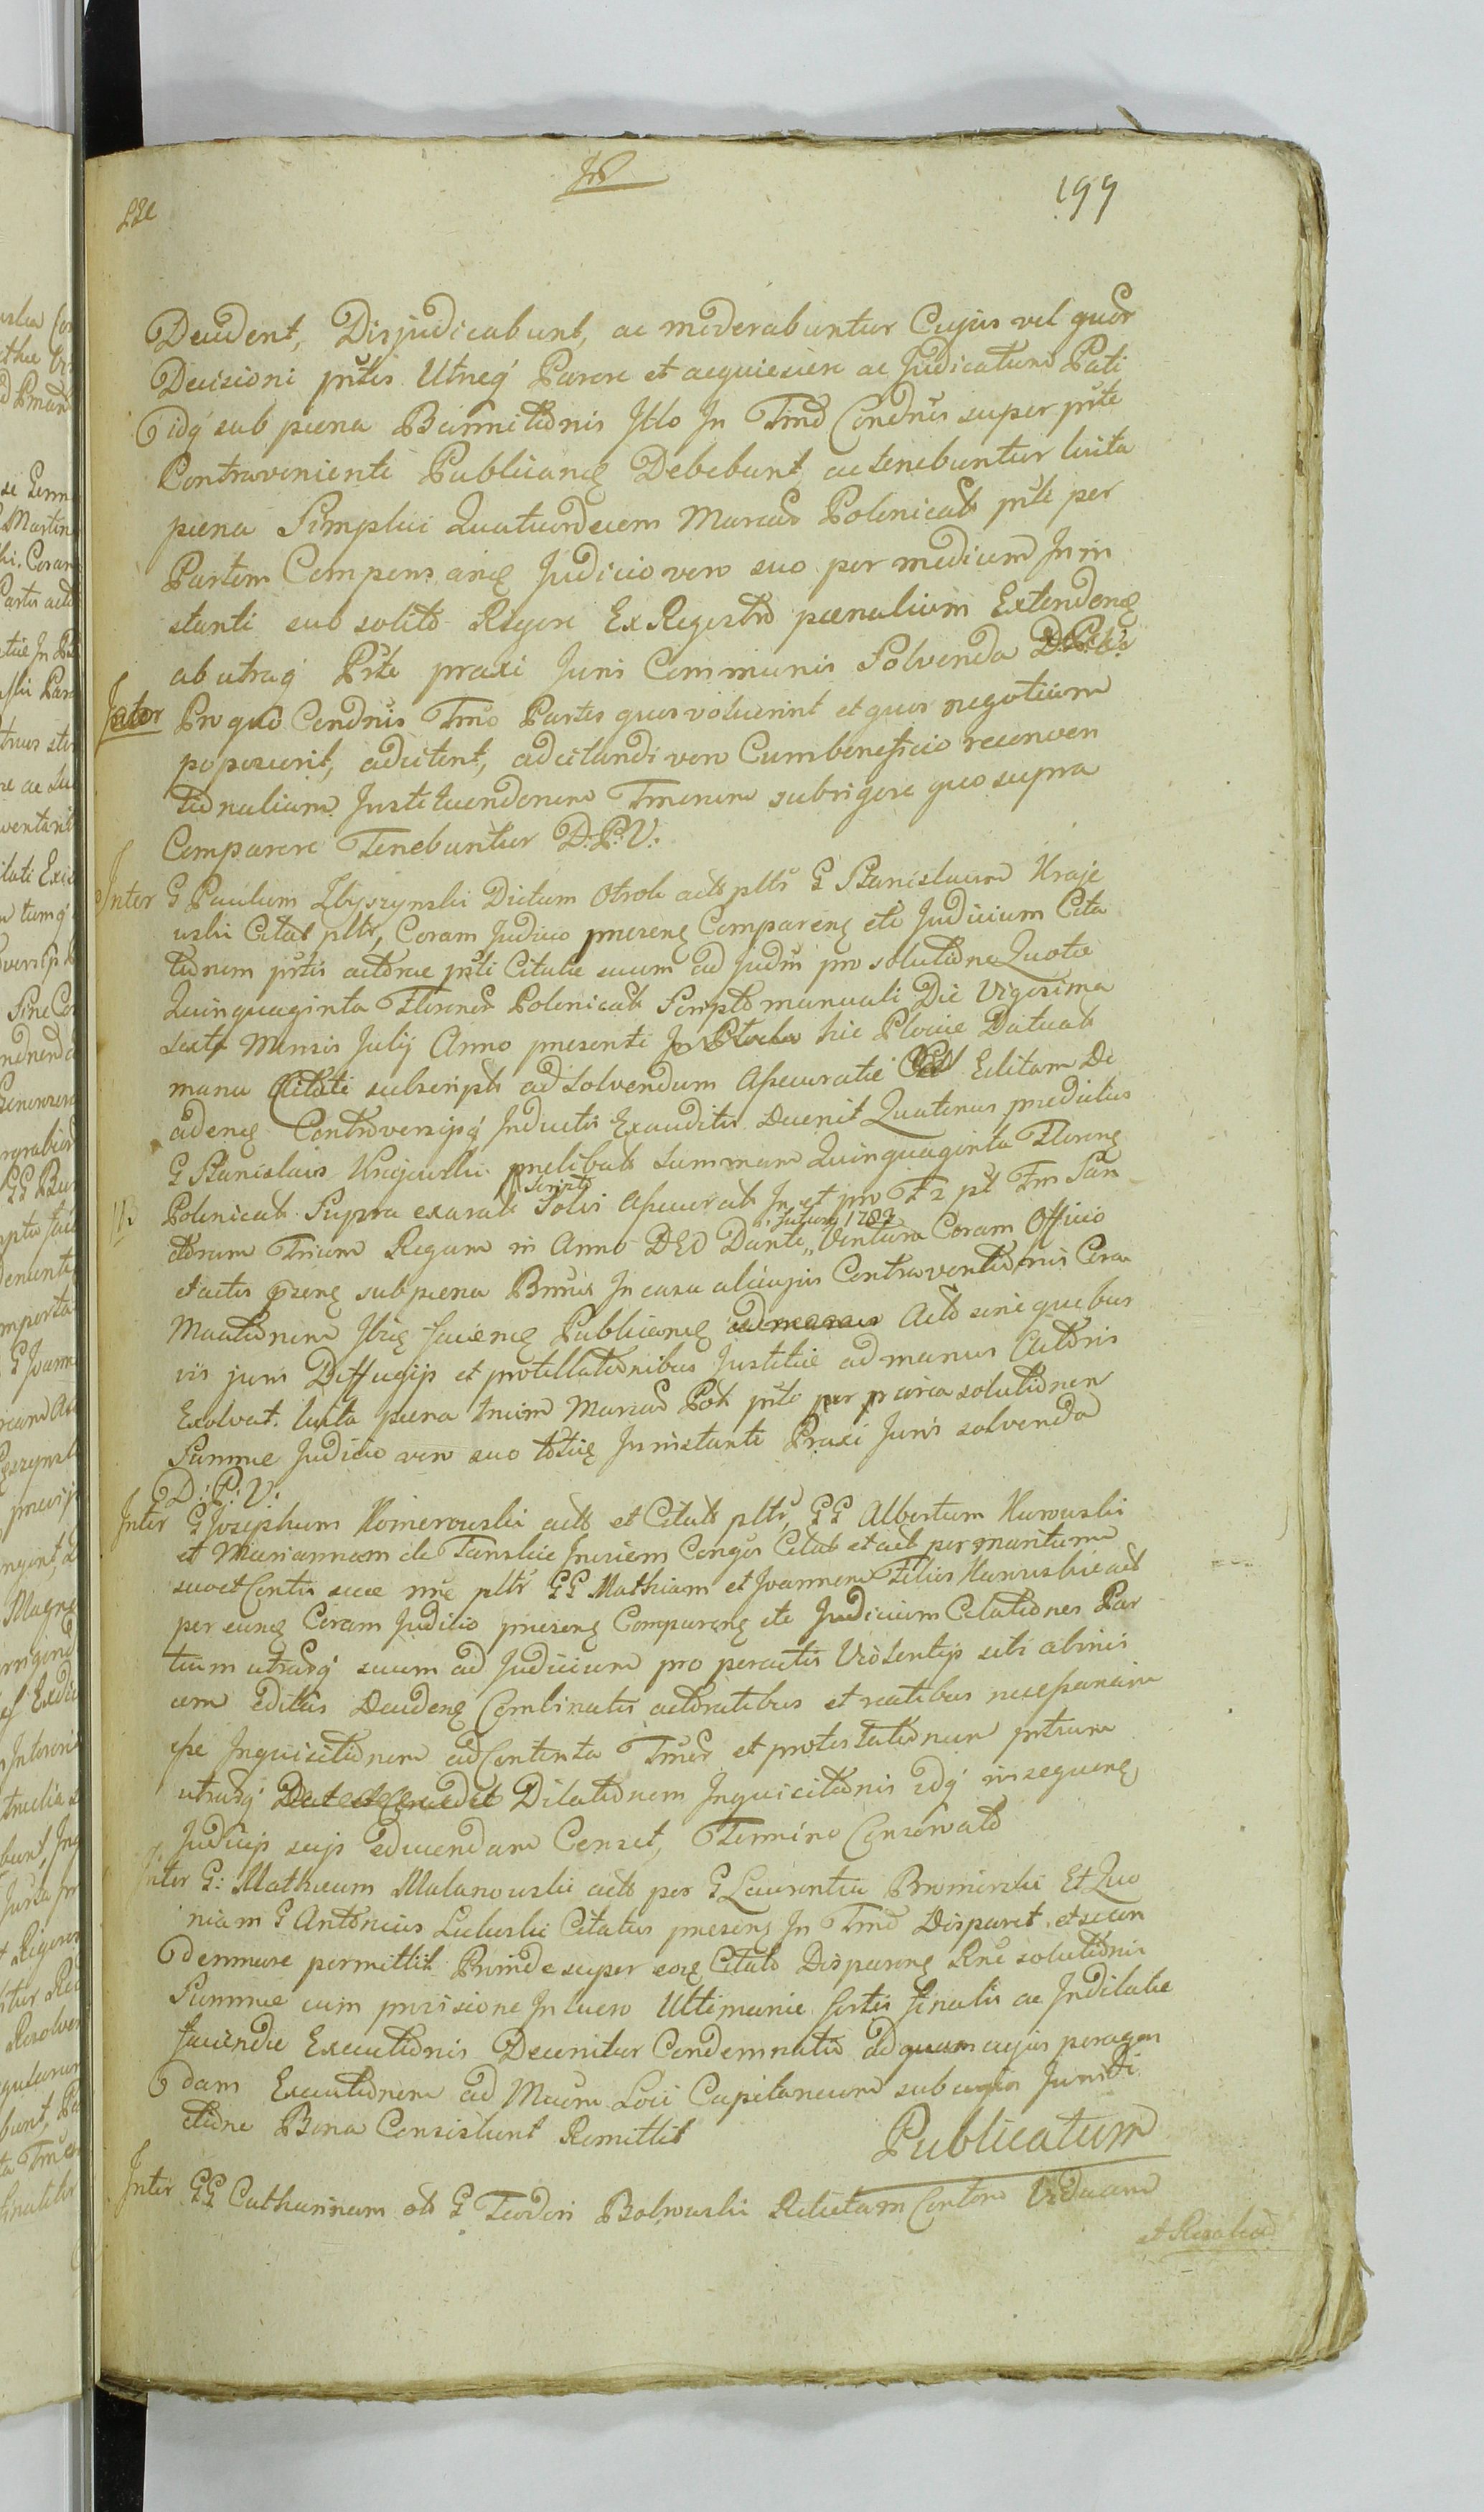 199
Decident, Disjudicabunt, ac moderabuntur Cujus vel quor
Decisioni prtes Utrneq Parere et acquiescere ac Judicatum Pati
idq sub pæna Bannitionis Illo In Tmo Condnis super prte
Contraveniente Publicanę Debebunt ac tenebuntur luita
pæna Simplici Quatuordecem Marcar Polonicalt prte per
Partem Compensanę Judicio vero suo per medium In in
stanti sub solito Rigore Ex Registro pænalium Extendenę
ab utraq Prte praxi Juris Communis Solvenda
Pro quo Condnis Tmo Partes quos voluerint et quos negotium
poposcerit, adcitent, adcitandi vero Cum beneficio reconven
tionalium Instituendorum Tmorum sub rigore quo supra
Comparere Tenebuntur D: P: V:
Inter G Paulum Zbyszynski Dictum Otrok actt pltr G Stanislaum Kraje
wski Citat pltr, Coram Judicio presenę Comparenę etc Judicium Cita
tionem prtis actorae prti Citatae suum ad Judm pro solutione Quotæ
Quinquaginta Florenor Polonicalt Scripto manuali Die Vigesima
sexta Mensis Julij Anno presenti hic Plociæ Datualt
manu Citati subscripto ad solvendum Assecuratæ Editam De
cidenę Controversijsq Inductis Exauditis Decernit Quatenus predictus
G Stanislaus Krajewski prælibatt summam Quinquaginta Florenę
Polonicalt Supra exaratt Scripto Solvi Assecuratt In et pro F2 pt Fm San
ctorum Trium Regum in Anno DEO Dante Venturo Coram Officio
et actis prsenę sub pæna Bmnis In casu alicujus Contraventionis Cora
Mactionem Ibię facienę Publicanę Acto sine quibus
vis juris Diffugijs et protellationibus Justitiæ ad manus Actoris
Exolvat. luita pæna trium Marcar Polt prte per parca solutionem
Summæ Judicio vero suo totię In instanti Praxi Juris solvenda
D: P: V:
Inter G Josephum Komerowski actt et Citatt pltr, GG Albertum Karwowski
et Mariannam de Tanskie Inviem Conges Citat et act per maritum
suo et Contis suæ nne pltr GG Mathiam et Joannem Filios Karwowskie act
per eunę Coram Juditio presenę Comparenę etc Judicium Citationes Par
tium utrarq suum ad Judicium pro peractis Violentijs sibi abinvi
cem editas Decidenę Combinatis actoratibus et reatibus necessariam
esse Inquisitionem ad Contenta Tmor et protestationum prtium
utrarq Dilationem Inquisitionis idq in sequenę
Judicijs suijs educendam Censet, Termino Conservato
Inter G: Matheum Malanowski actt per G Laurentiu Bromirski Et Quo
niam G Antonius Luboski Citatus presenę In Tmo Disparet et se con
demnare permittit Proinde super eoę Citato Disparenę Rne solutionis
Summæ cum provisione In lucro Ultimariæ sortis finalis ac Indilatæ
faciendæ Executionis Decernitur Condemnatio ad quam cujus peragen
dam Executionem ad Mcum Loci Capitaneum sub cujus Jurisdi
ctione Bona Consistunt Remittit
Publicatum
Inter GG Catharinam olt G Teodori Bolnowski Relictam Contore Viduam